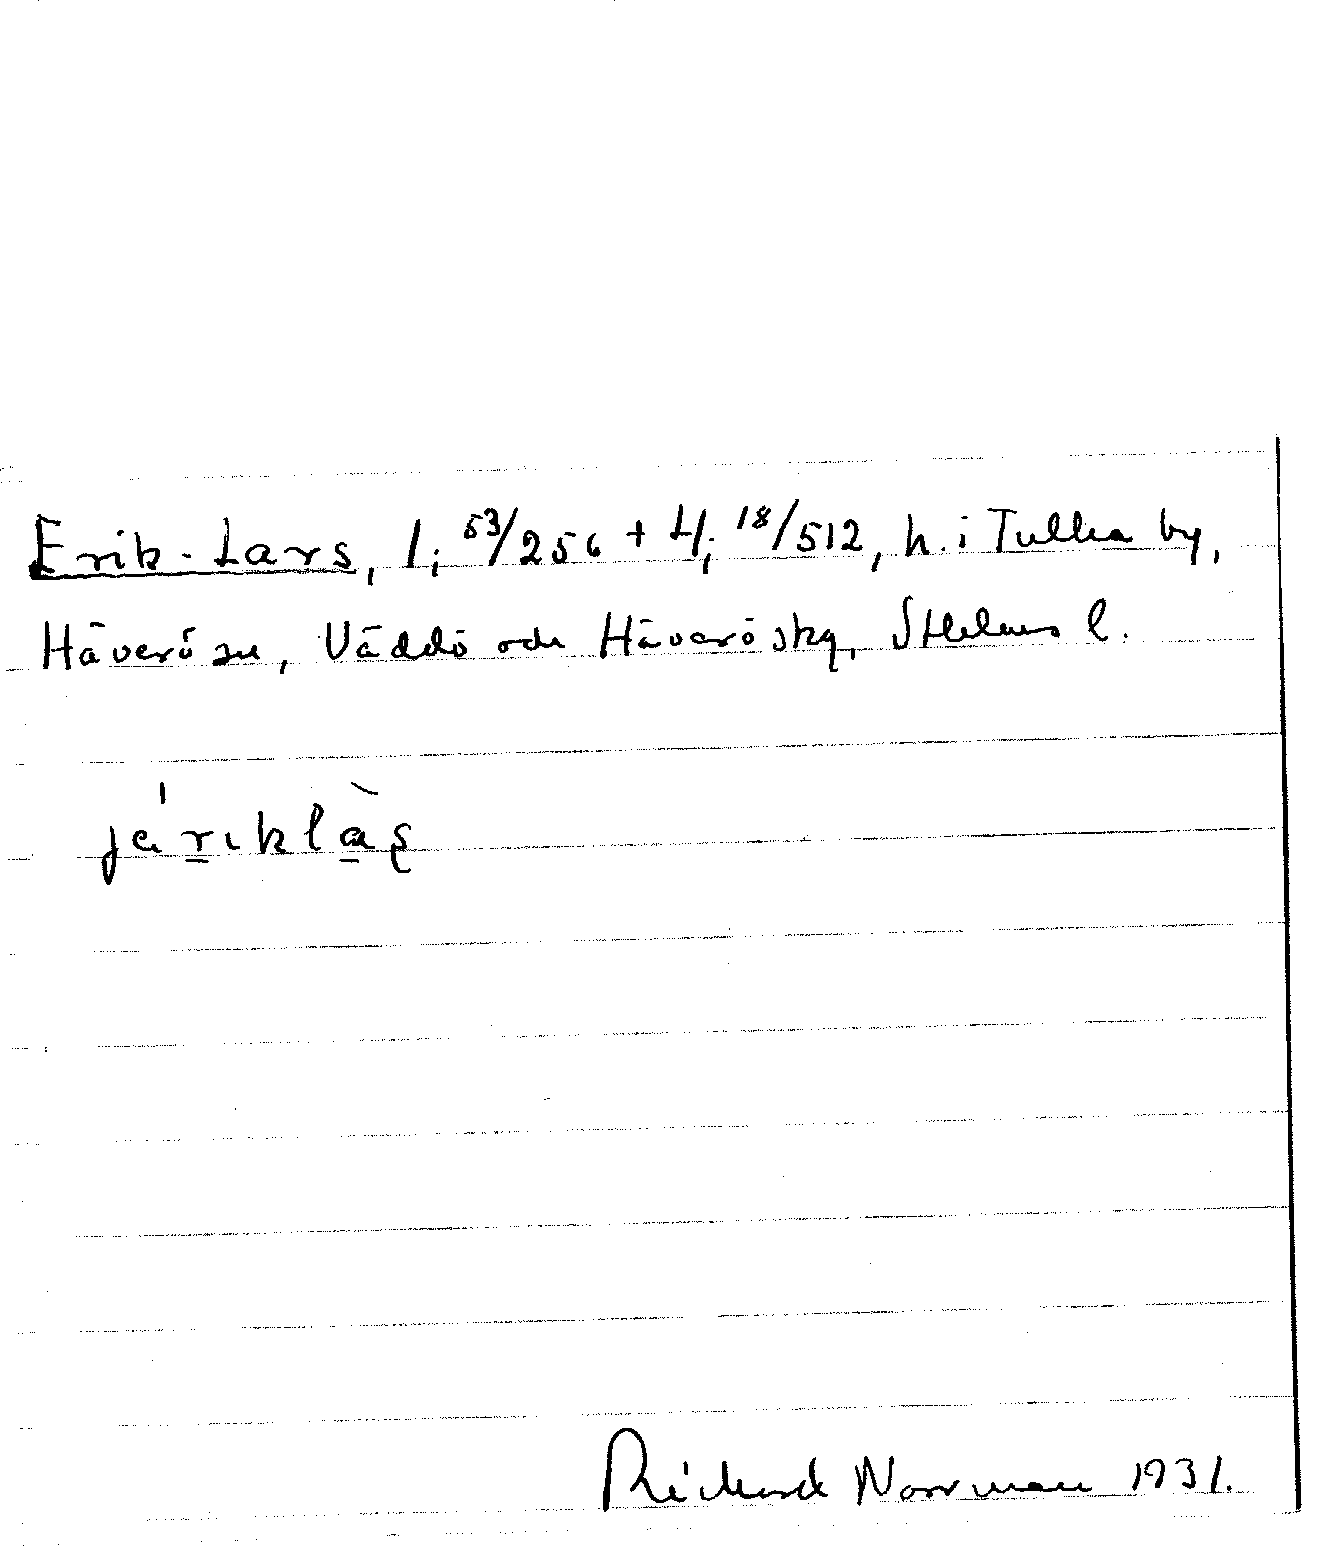 Erik-Lars, 1; 53/256 + 4; 18/512, h. i Tulka by,
Häverö sn, Väddö och Häverö skg, Sthlms l.
járıklàş
Richard Norrman 1931.